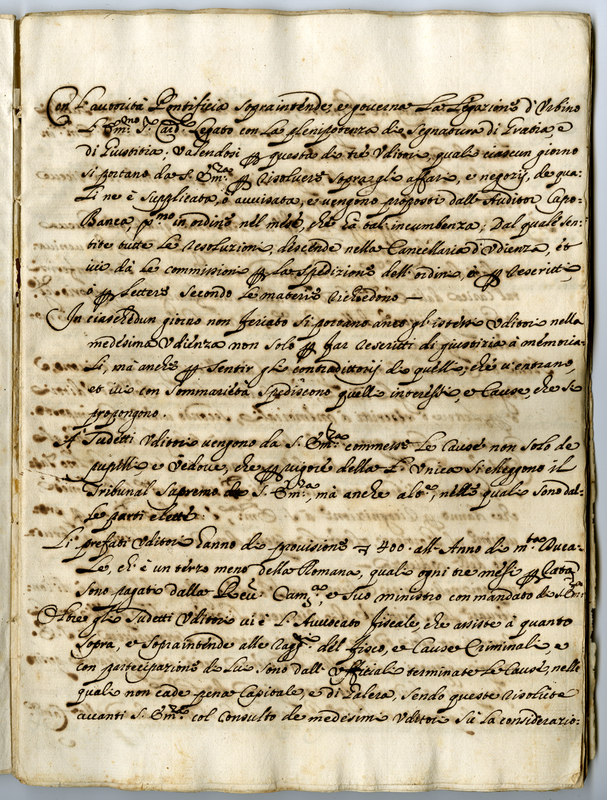 Con l'autorità Pontificia sopraintende, e governa la Legazione d'Urbino
l'Em.mo S.r Card.l Legato con la plenipotenza di Segnatura di Gratia, e
di Giustitia; Valendosi p questa di trè Uditori, quali ciascun giorno
si portano da S. Em.za p risolvere sopra gli affari, e negozij, de qua-
li ne è supplicata, ò avvisata, e vengono proposti dall'Auditor Capo-
Banca p.mo in ordine nel mese, che hà tal'incumbenza; Dal quale sen-
tite tutte le resoluzioni, discende nella Cancellaria d'Udienza, et
ivi dà le commissioni p la spedizione dell'ordini, ò p rescritti,
ò p lettere secondo le materie richiedono —
In ciaschedun giorno non feriato si portano anco gl'istessi Uditori nella
medesima Udienza non solo p far rescritti di giustitia à memoria-
li, mà anche p sentir gli contradittorij di quelli, che v'entrano,
et ivi con sommarietà spediscono quelli interessi, e Cause, che si
propongono.
A sudetti Uditori vengono da S. Em.za commesse le Cause non solo de
pupilli e Vedove, che p vigore della L. Unica si eleggono il
Tribunal supremo di S. Em.za, mà anche altre, nelle quali sono dal-
le parti elette.
Li prefati Uditori hanno di provisione 400. all'Anno di m.ta Duca-
le, ch'è un terzo meno della Romana, quali ogni tre mesi p rata
sono pagati dalla Rev. Cam.ra, e suo ministro con mandato di S. Em.
Oltre gli sudetti Uditori vi è l'Avvocato fiscale, che assiste à quanto
sopra, e sopraintende alle rag.ni del fisco, e Cause Criminali, e
con partecipazione di lui sono dall'Uffiziali terminate le Cause, nelle
quali non cade pena Capitale, e di Galera, sendo queste risolute
avanti S. Em.za col consulto de medesimi Uditori. Sù la considerazio-